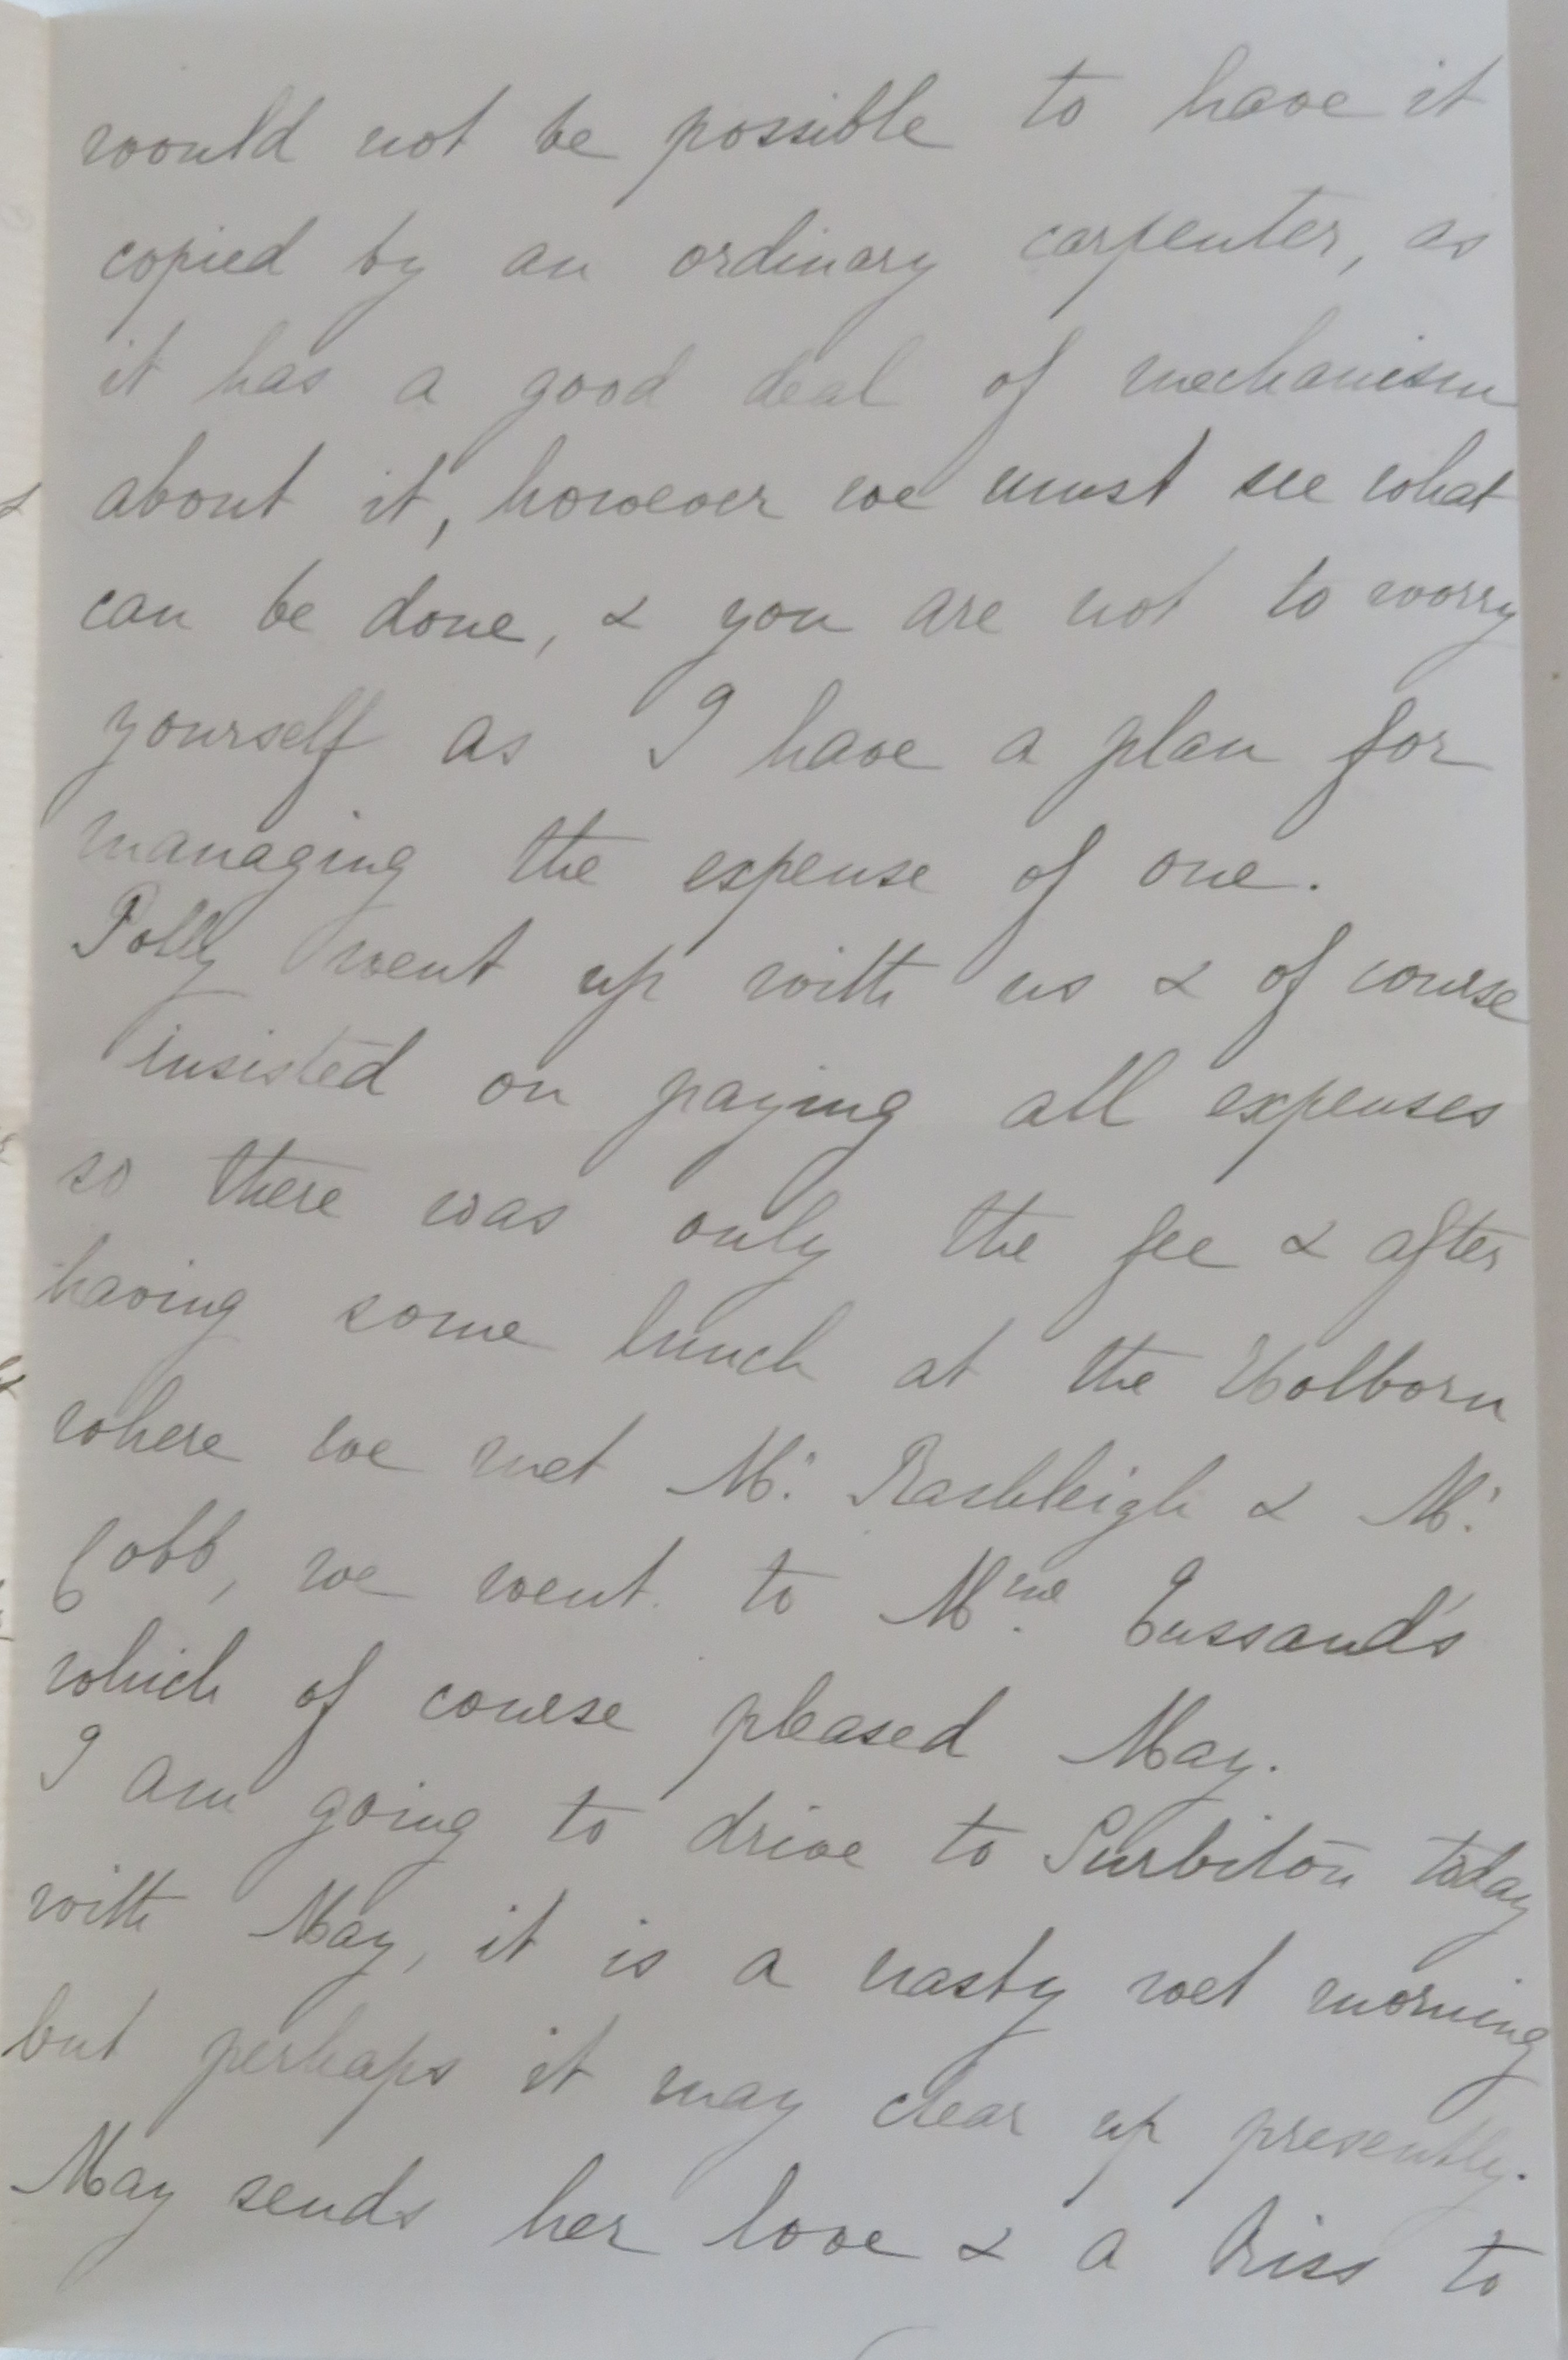 would not be possible to have it
copied by an ordinary carpenter, as
it has a good deal of mechanism
about it, however we must see what
can be done, & you are not to worry
yourself as I have a plan for
managing the expense of one.
Polly went up with us & of course
insisted on paying all expenses
so there was only the fee & after
having some lunch at the Holborn
where we met Mr. Rashleigh & Mr.
Cobb, we went to Mme. Tussaud's
which of course pleased May.
I am going to drive to Surbiton today
with May, it is a nasty wet morning
but perhaps it may clear up presently.
May sends her love & a kiss to